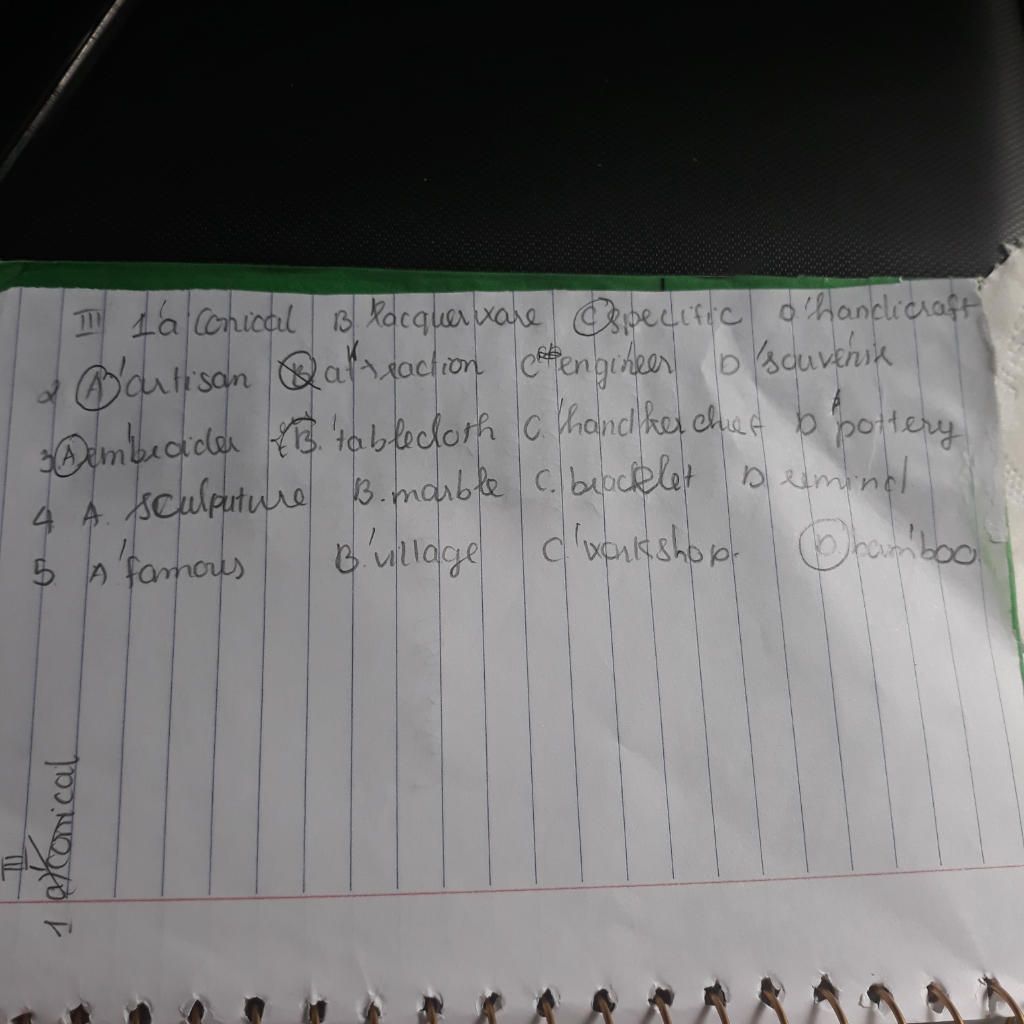 III 1 a' Conical B lacquerware C specific D 'handicraft
2 A 'artisan B at'traction C engineer D 'souvenir
3 A em'broider B. 'tablecloth C. 'handkerchief D 'pottery
4 A. 'sculputure B. marble C. bracelet D remind
5 A 'famous B. 'village C 'workshop. D bam'boo
III
1 a Conical